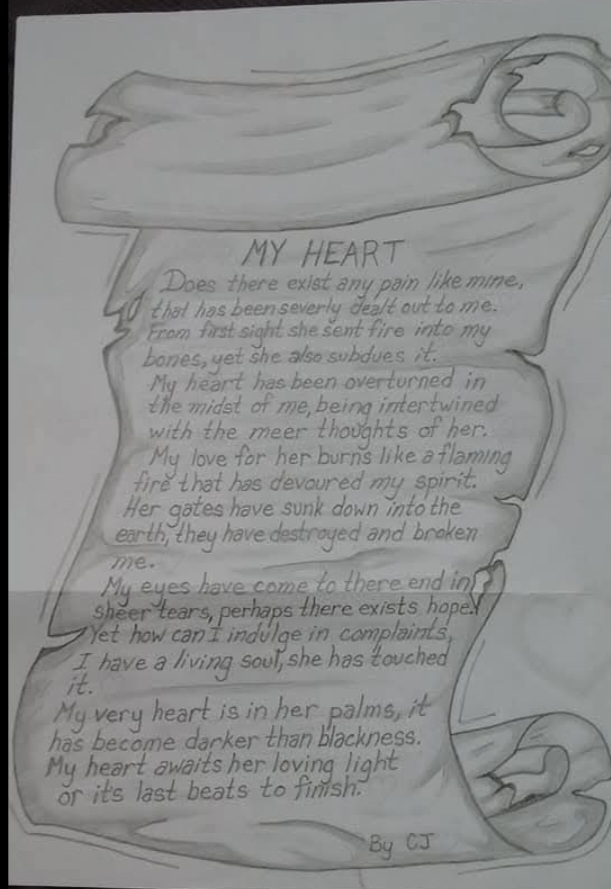 MY HEART
Does there exist any pain like mine,
that has been severly dealt out to me.
From first sight she sent fire into my
bones, yet she also subdues it.
My heart has been overturned in
the midst of me, being intertwined
with the meer thoughts of her.
My love for her burns like a flaming
fire that has devoured my spirit.
Her gates have sunk down into the
earth, they have destroyed and broken
me.
My eyes have come to there end in
sheer tears, perhaps there exists hope.
Yet how can I indulge in complaints,
I have a living soul, she has touched
it.
My very heart is in her palms, it
has become darker than blackness.
My heart awaits her loving light
or its last beats to finish.
By CJ